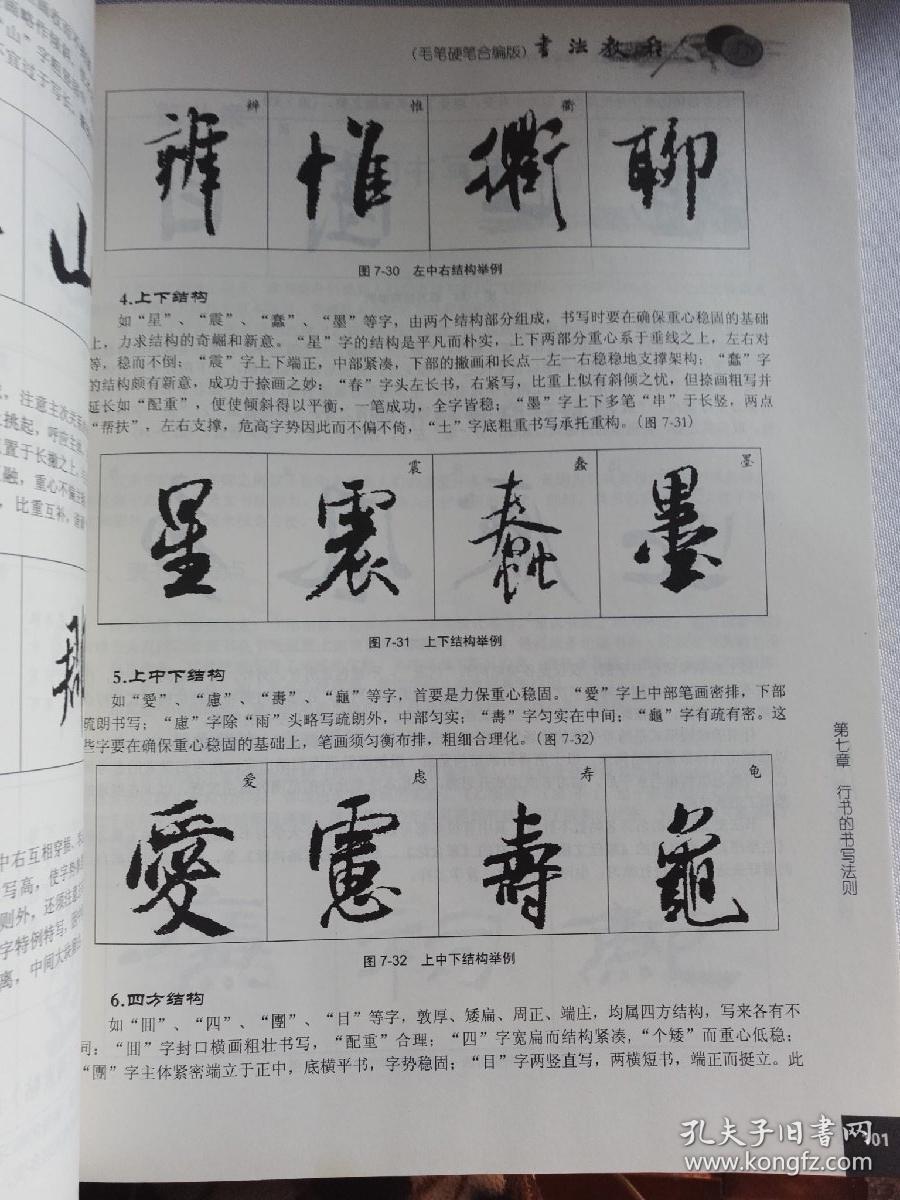 (毛笔硬笔合编版) 书法教程
辨 惟 衢
辨 惟 衢 聊
图 7-30 左中右结构举例
4.上下结构
如“星”、“震”、“蠢”、“墨”等字，由两个结构部分组成，书写时要在确保重心稳固的基础
上，力求结构的奇崛和新意。“星”字的结构是平凡而朴实，上下两部分重心系于垂线之上，左右对
等，稳而不倒；“震”字上下端正，中部紧凑，下部的撇画和长点一左一右稳稳地支撑架构；“蠢”字
的结构颇有新意，成功于捺画之妙：“春”字头左长书，右紧写，比重上似有斜倾之忧，但捺画粗写并
延长如“配重”，便使倾斜得以平衡，一笔成功，全字皆稳；“墨”字上下多笔“串”于长竖，两点
“帮扶”，左右支撑，危高字势因此而不偏不倚，“土”字底粗重书写承托重构。(图 7-31)
震 蠢 墨
星 震 蠢 墨
图 7-31 上下结构举例
5.上中下结构
如“愛”、“慮”、“壽”、“龜”等字，首要是力保重心稳固。“愛”字上中部笔画密排，下部
疏朗书写；“慮”字除“雨”头略写疏朗外，中部匀实；“壽”字匀实在中间；“龜”字有疏有密。这
些字要在确保重心稳固的基础上，笔画须匀衡布排，粗细合理化。(图 7-32)
爱 虑 寿 龟
愛 慮 壽 龜
图 7-32 上中下结构举例
6.四方结构
如“囬”、“四”、“團”、“日”等字，敦厚、矮扁、周正、端庄，均属四方结构，写来各有不
同：“囬”字封口横画粗壮书写，“配重”合理；“四”字宽扁而结构紧凑，“个矮”而重心低稳；
“團”字主体紧密端立于正中，底横平书，字势稳固；“日”字两竖直写，两横短书，端正而挺立。此
第七章 行书的书写法则
01
山”字
宜过于写长
山
，注意主次关系
挑起，呼应主
置于长撇之上
融，重心不偏
，比重互补
中右互相穿插
写高，使字势
则外，还须注意
字特例特写
离，中间大
孔夫子旧书网
www.kongfz.com